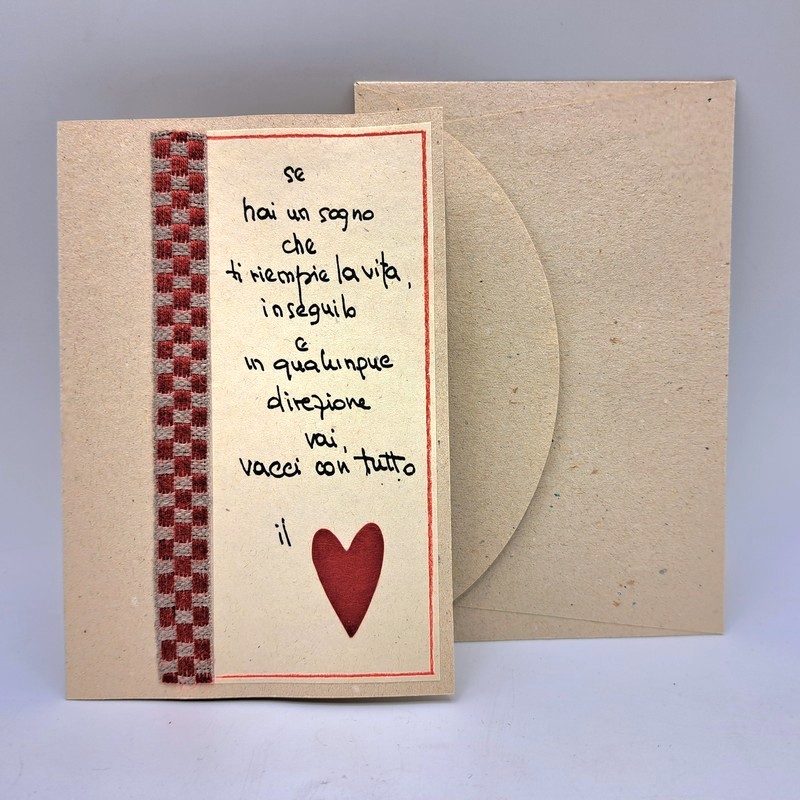 se
hai un sogno
che
ti riempie la vita,
inseguilo
e
in qualunque
direzione
vai,
vacci con tutto
il